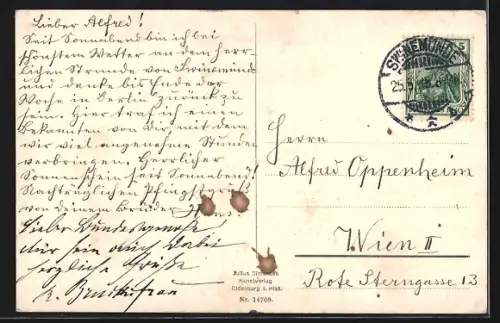 Lieber Alfred!
Seit Sonnabend bin ich bei
schönstem Wetter an dem herr-
lichen Strande von Swinemünde
und denke bis Ende der
Woche in Berlin zurück zu
sein. Hier traf ich einen
Bekannten von Dir, mit dem
wir viel angenehme Stunden
verbringen. Herrlicher
Sonnenschein seit Sonnabend!
Nachträglichen Pfingstgruß
von deinem Bruder
Lieber Bundesgenosse
herzliche Grüße
SWINEMÜNDE
25.5.
5
Herrn
Alfred Oppenheim
Wien II
Rote Sterngasse 13
Kunstverlag
Oldenburg i. Hlst.
Nr. 14709.